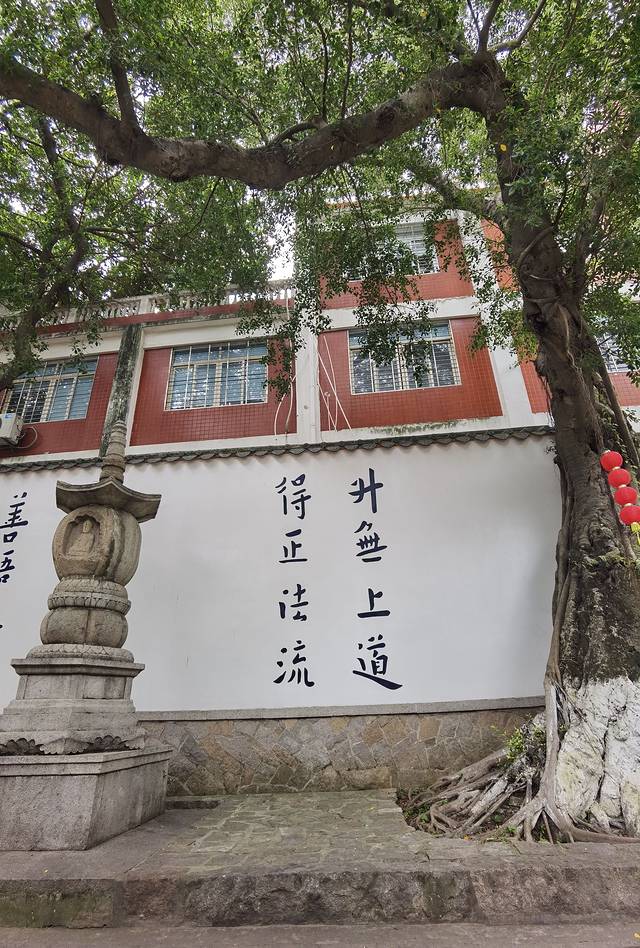 升無上道
得正法流
善